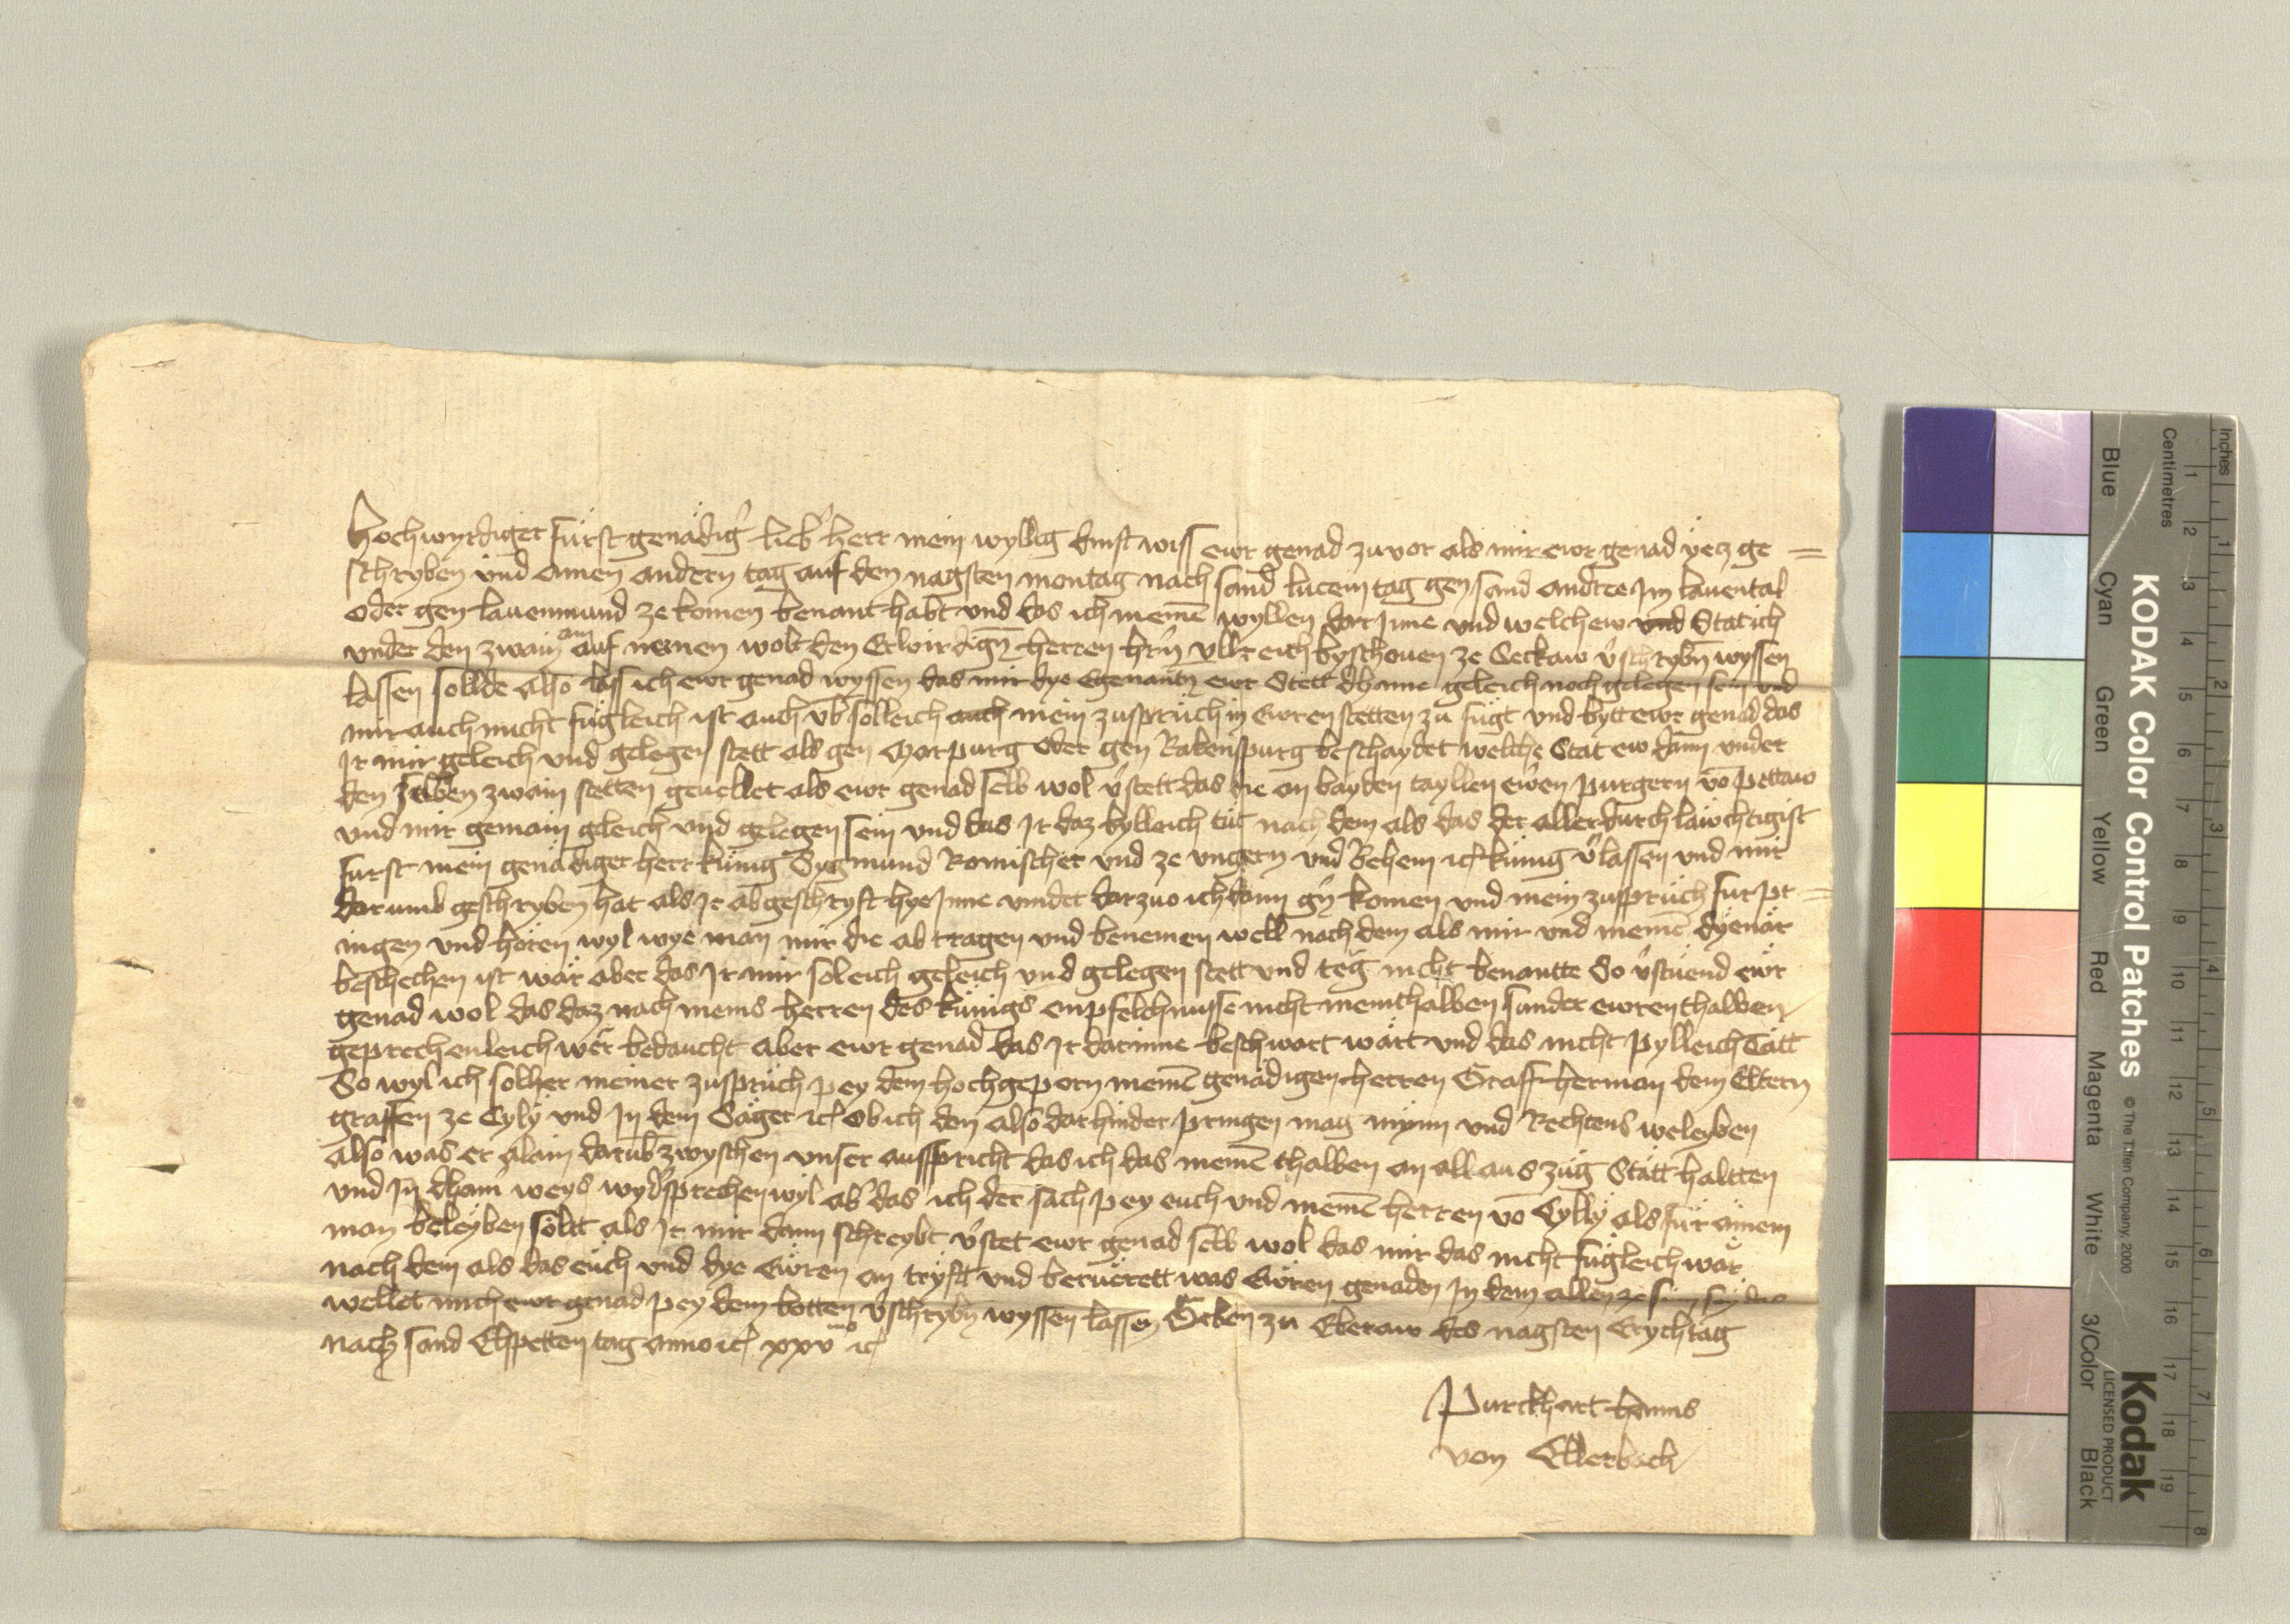 Hochwyrdiger fürst genädig' lieb' herr mein wyllig dinst wiss ewr genad zuvor als mir ewr genad yecz ge =
schryben und ainen andern tag auf den nagsten montag nach sand lucein tag gen sand andree Jm lauental
oder gen lauenmund ze komen benant habt und das ich meinē wyllen dor Jnne und welchew und Stat ich
under den zwain an auf nemen wolt den Erwirdign̄ herren hrn̄ vllreich byschouen ze Seckaw v'schrybn̄ wyssen
lassen sollde also lass ich ewr genad wyssen das mir dye Egenantn̄ ewr Stett dhaine geleich noch gelegen sein und
mir auch nicht fugleich ist auch vb solleich auch mein zuspruch in Ewren stetten zu fugt und bytt ewr genad das
Jr mir geleich und gelegen stett als gen Marpurg oder gen Rakenspurg beschaydet welche Stat ew dann under
den selben zwain stetten geuellet als ewr genad selb wol v'stett das die an bayden taylen ewren purgern vō pettaw
und mir gemain gleich und gelegen sein und das Jr daz byllleich tut nach dem als das der allerdurchläwchtigist
furst mein genädiger herr künig Sygmund Romischer und ze ungern und Behem ıc künig v'lassen und mir
darumb geschryben hat als Jr abgeschryft hye Jnne vindet darzuo ich dann gn̄ komen und mein zuspruch fur pr =
ingen und hören wyl wye man mir die ab tragen und benemen well nach dem als mir und meinē dyenär
beschechen ist wär aber das Jr mir soleich geleich und gelegen stett und teg nicht benantte So v'stuend ewr
genad wol das daz nach meins herren des künigs enpfelchnusse nicht meinthalben sunder ewrenthalben
geprechenleich wer bedaucht aber ewr genad das Jr darinne beschwärt wärt und das nicht pylleich Tätt
So wyl ich solher meiner zuspruch pey dem hochgeporn meinē genädigen herren Graff herman dem Eltern
graffen ze Cyly und Jn dem Säger ıc ob ich den also darhinder pringen mag mynn und Rechtens weleyben
also was er alain darub zwyschen unser ausspricht das ich das meinē thalben an all aus zug Stätt haltten
und Jn dhain' weys wyd'sprechen wyl ab' das ich der sach pey euch und meinē herren vō Cylly als fur ainem
man beleyben söltt als Jr mir dann schreybt v'stet ewr genad selb wol das mir das nicht fugleich wär
nach dem als das euch und dye Ewren an tryfft und beruerett was Ewren genaden Jn dem allen ze sinn sey das
wellet mich ewr genad pey dem botten v'schrybn̄ wyssen lassen Geben zu Eberaw des nagsten Erychtag
nach sand Elspetten tag anno ıc xxvto ıc
Purckhart hanns
von Ellerbach
KODAK Color Control Patches
© The Tiffen Company, 2000
Kodak
LICENSED PRODUCT
Blue Cyan Green Yellow Red Magenta White 3/Color Black
Inches 1 2 3 4 5 6 7 8
Centimetres 1 2 3 4 5 6 7 8 9 10 11 12 13 14 15 16 17 18 19